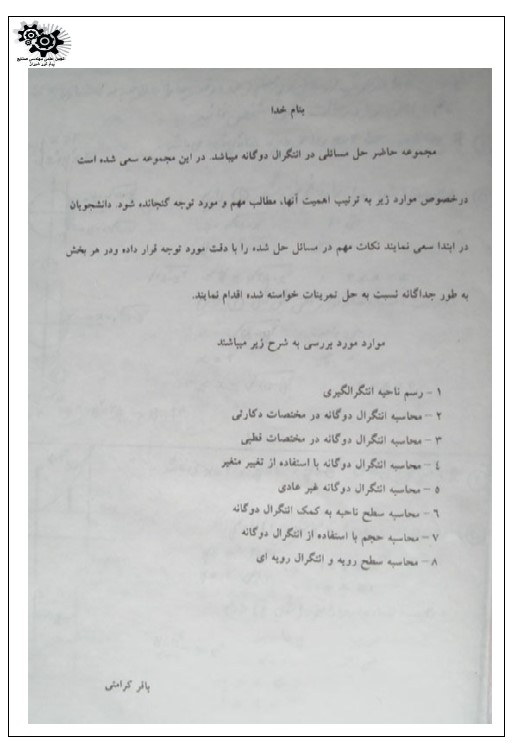 انجمن علمی مهندسی صنایع
پیام نور شیراز
بنام خدا
مجموعه حاضر حل مسائلی در انتگرال دوگانه میباشد. در این مجموعه سعی شده است
درخصوص موارد زیر به ترتیب اهمیت آنها، مطالب مهم و مورد توجه گنجانده شود. دانشجویان
در ابتدا سعی نمایند نکات مهم در مسائل حل شده را با دقت مورد توجه قرار داده ودر هر بخش
به طور جداگانه نسبت به حل تمرینات خواسته شده اقدام نمایند.
موارد مورد بررسی به شرح زیر میباشند
۱ – رسم ناحیه انتگرالگیری
۲ – محاسبه انتگرال دوگانه در مختصات دکارتی
۳ – محاسبه انتگرال دوگانه در مختصات قطبی
٤ – محاسبه انتگرال دوگانه با استفاده از تغییر متغیر
۵ – محاسبه انتگرال دوگانه غیر عادی
۶ – محاسبه سطح ناحیه به کمک انتگرال دوگانه
۷ – محاسبه حجم با استفاده از انتگرال دوگانه
۸ – محاسبه سطح رویه و انتگرال رویه ای
باقر کرامتی